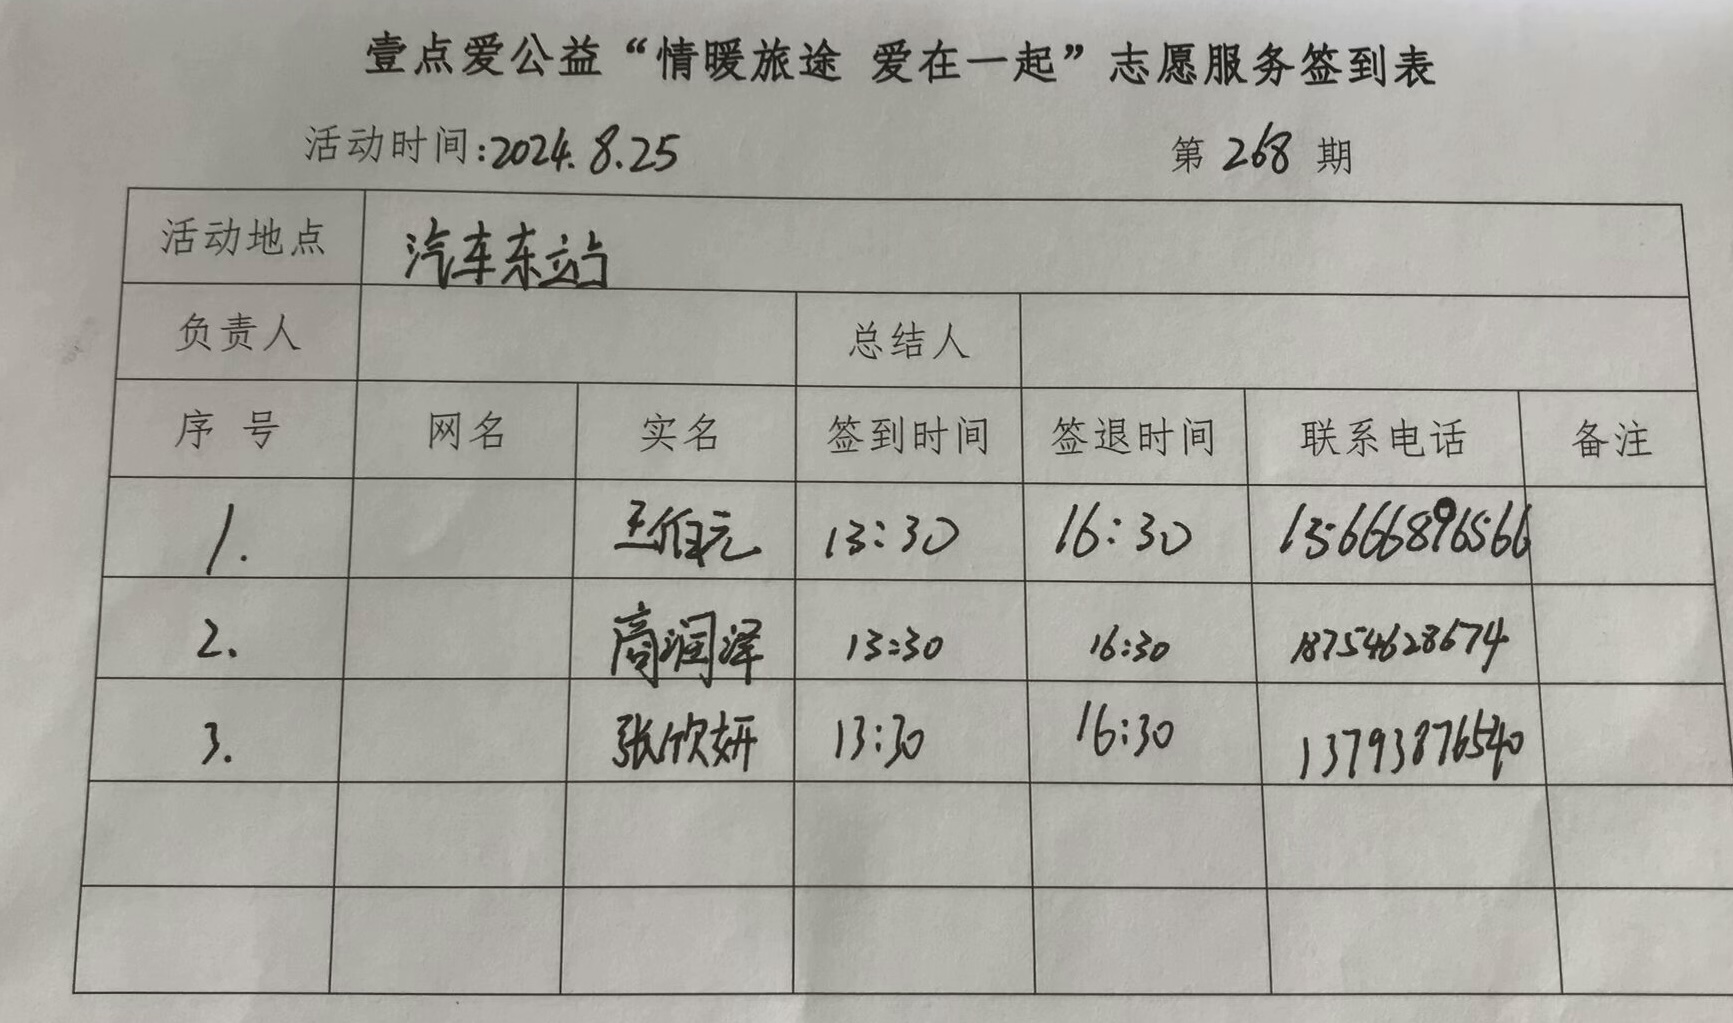 壹点爱公益“情暖旅途 爱在一起”志愿服务签到表
活动时间:2024.8.25 第 268 期
活动地点 汽车东站
负责人 总结人
序 号 网名 实名 签到时间 签退时间 联系电话 备注
1. 王伯元 13:30 16:30 13666896566
2. 高润泽 13:30 16:30 18754628674
3. 张欣妍 13:30 16:30 13793876540